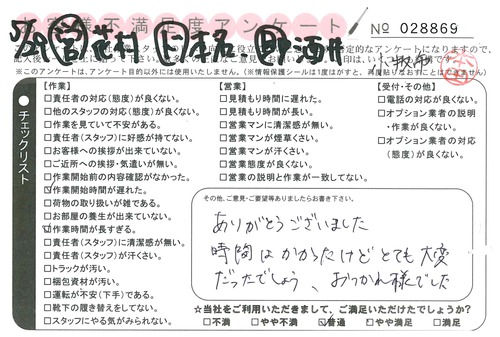 お客様不満足度アンケート
№ 028869
※このアンケートは、アンケート目的以外には使用いたしません。(※情報保護シールは1度はがすと、再度貼りなおすことはできません)
チェックリスト
【作業】
□責任者の対応(態度)が良くない。
□他のスタッフの対応(態度)が良くない。
□作業を見ていて不安がある。
□責任者(スタッフ)に好感が持てない。
□お客様への挨拶が出来ていない。
□ご近所への挨拶・気遣いが無い。
□作業開始前の内容確認がなかった。
□作業開始時間が遅れた。
□荷物の取り扱いが雑である。
□お部屋の養生が出来ていない。
☑作業時間が長すぎる。
□責任者(スタッフ)に清潔感が無い。
□責任者(スタッフ)が汗くさい。
□トラックが汚い。
□梱包資材が汚い。
□運転が不安(下手)である。
□靴下の履き替えをしてない。
□スタッフにやる気がみられない。
【営業】
□見積もり時間に遅れた。
□見積もり時間が長い。
□営業マンに清潔感が無い。
□営業マンが煙草くさい。
□営業マンが汗くさい。
□営業態度が良くない。
□営業の説明と作業が一致してない。
【受付・その他】
□電話の対応が良くない。
□オプション業者の説明
・作業が良くない。
□オプション業者の対応
(態度)が良くない。
その他、ご意見・ご要望等ありましたらお書き下さい。
ありがとうございました
時間はかかったけどとても大変
だったでしょう、おつかれ様でした
☆当社をご利用いただきまして、ご満足いただけたでしょうか?
□不満 □やや不満 ☑普通 □やや満足 □満足